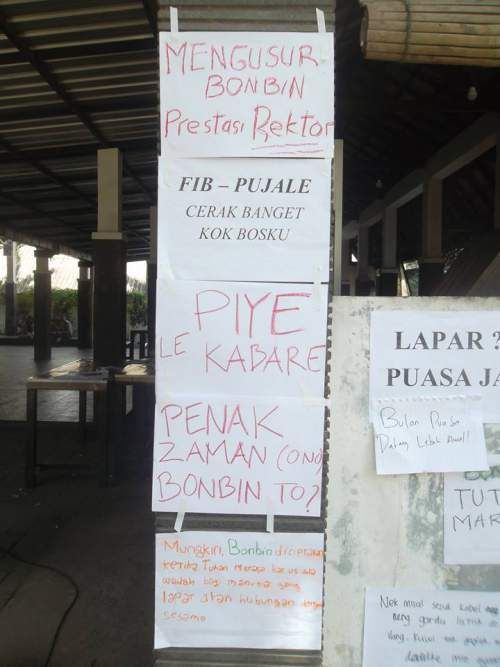 MENGUSUR
BONBIN
Prestasi Rektor
FIB – PUJALE
CERAK BANGET
KOK BOSKU
PIYE
LE KABARE
PENAK
ZAMAN (ONO)
BONBIN TO?
Mungkin, Bonbin diciptakan
ketika Tuhan merasa harus ada
wadah bagi manusia yang
lapar akan hubungan dengan
sesama
LAPAR ?
PUASA JA
Bulan Puasa
Datang Lebih Awal!
TUT
MAR
Nek misal seko kabel
neng gardu listrik